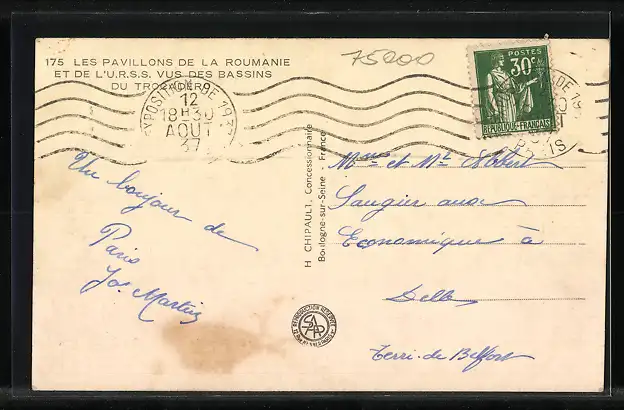 75200
175 LES PAVILLONS DE LA ROUMANIE
ET DE L'U.R.S.S. VUS DES BASSINS
DU TROCADERO
POSTES
30c
REPUBLIQUE FRANÇAISE
EXPOSITION DE 1937
12
18H30
AOUT
37
PARIS
Un bonjour de
Paris
Jos. Martin
H CHIPAULT, Concessionnaire
Boulogne-sur-Seine - France
REPRODUCTION RESERVEE
Mme et Mr Albert
Saugier aux
Economique à
Delle
Terri. de Belfort